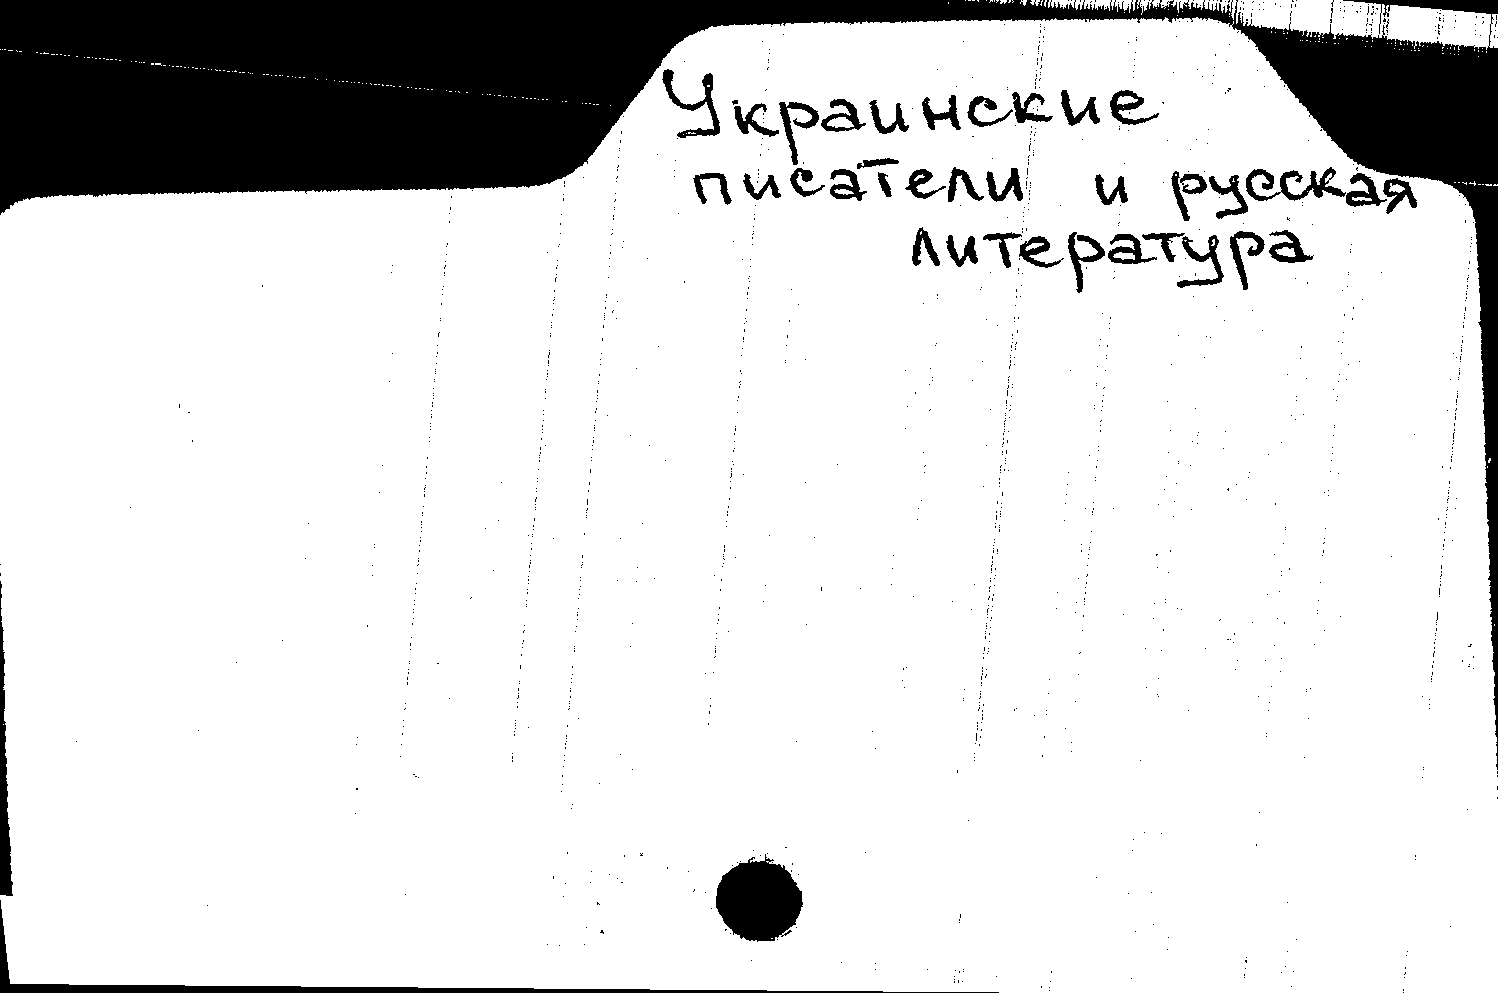 Украинские
писатели и русская
литература